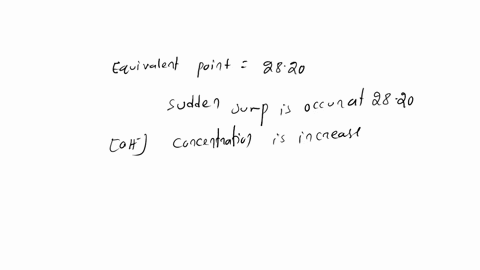 Equivalent point = 28.20
sudden jump is occur at 28.20
[OH-] concentration is increase